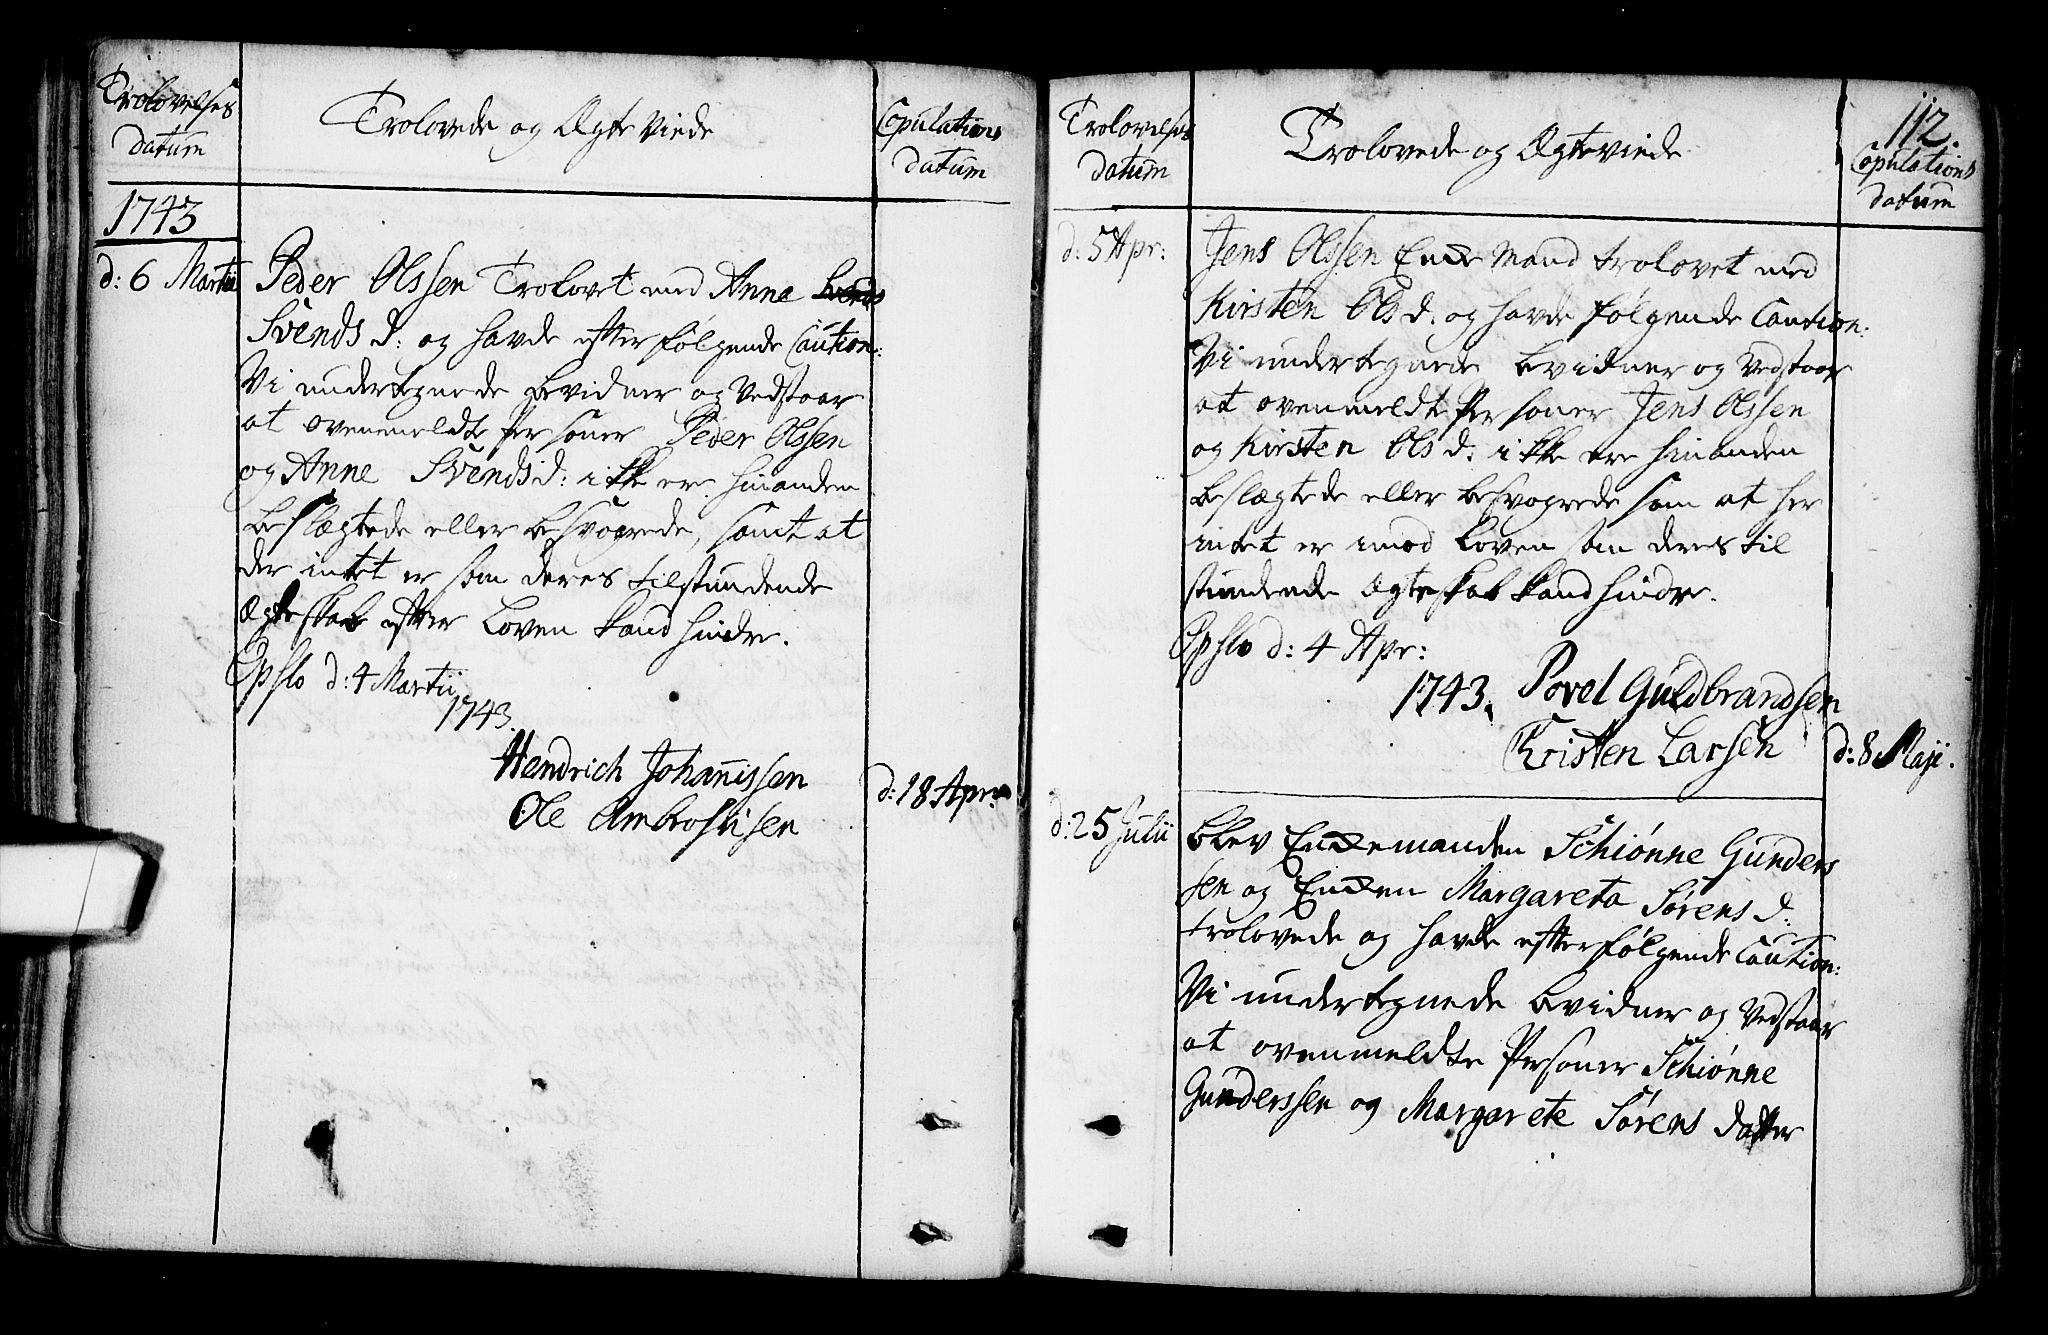 Trolovelses
datum
Trolovede og Ægte Viede
Copulations
datum
1743
d: 6 Martii
Peder Olssen Trolovet med Anne
Svends d: og hafde efterfølgende Caution:
Vi undertegnede bevidner og Vedstaar
at ovenmeldte Personer Peder Olssen
og Anne Svends d: ikke ere hinanden
beslægtede eller besvogrede, samt at
der intet er som deres tilstundende
Ægteskab efter Loven kand hindre.
Opslo d: 4 Martii
1743.
Hendrich Johannissen
Ole Ambrosisen
d: 18 Apr:
112.
Trolovelses
datum
Trolovede og Ægteviede
Copulations
datum
d: 5 Apr:
Jens Olssen Enke Mand trolovet med
Kirsten Ols d. og havde følgende Caution:
Vi undertegnede bevidner og Vedstaar
at ovenmeldte Personer Jens Olssen
og Kirsten Ols d: ikke ere hinanden
beslægtede eller besvogrede som at her
intet er imod Loven som deres til
stundende Ægteskab kand hindre.
Opslo d: 4 Apr:
1743. Povel Guldbrandsen
Kristen Larsen
d: 8 Maji.
d: 25 Julii
blev Enkemanden Schiønne Gunders
sen og Enken Margareta Sørens d:
trolovede og havde efterfølgende Caution:
Vi undertegnede bevidner og Vedstaar
at ovenmeldte Personer Schiønne
Gunderssen og Margarete Sørens datter